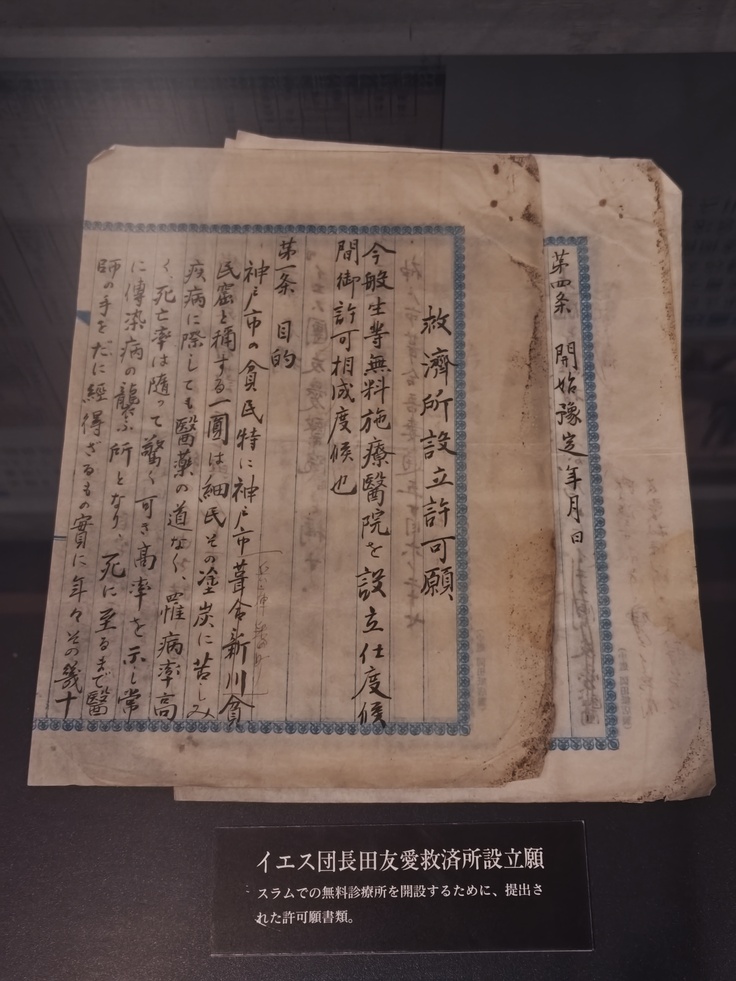 救濟所設立許可願
今般生等無料施療醫院を設立仕度候
間御許可相成度候也
第一条 目的
神戸市の貧民特に神戸市葺合新川貧
民窟と稱する一圓は細民その塗炭に苦しみ
疾病に際しても醫藥の道なく、罹病率高
く、死亡率は隨って驚く可き高率を示し常
に傳染病の襲ふ所となり、死に至るまで醫
師の手をだに經得ざるもの實に年々その幾十
第四条 開始豫定年月日
イエス団長田友愛救済所設立願
スラムでの無料診療所を開設するために、提出さ
れた許可願書類。